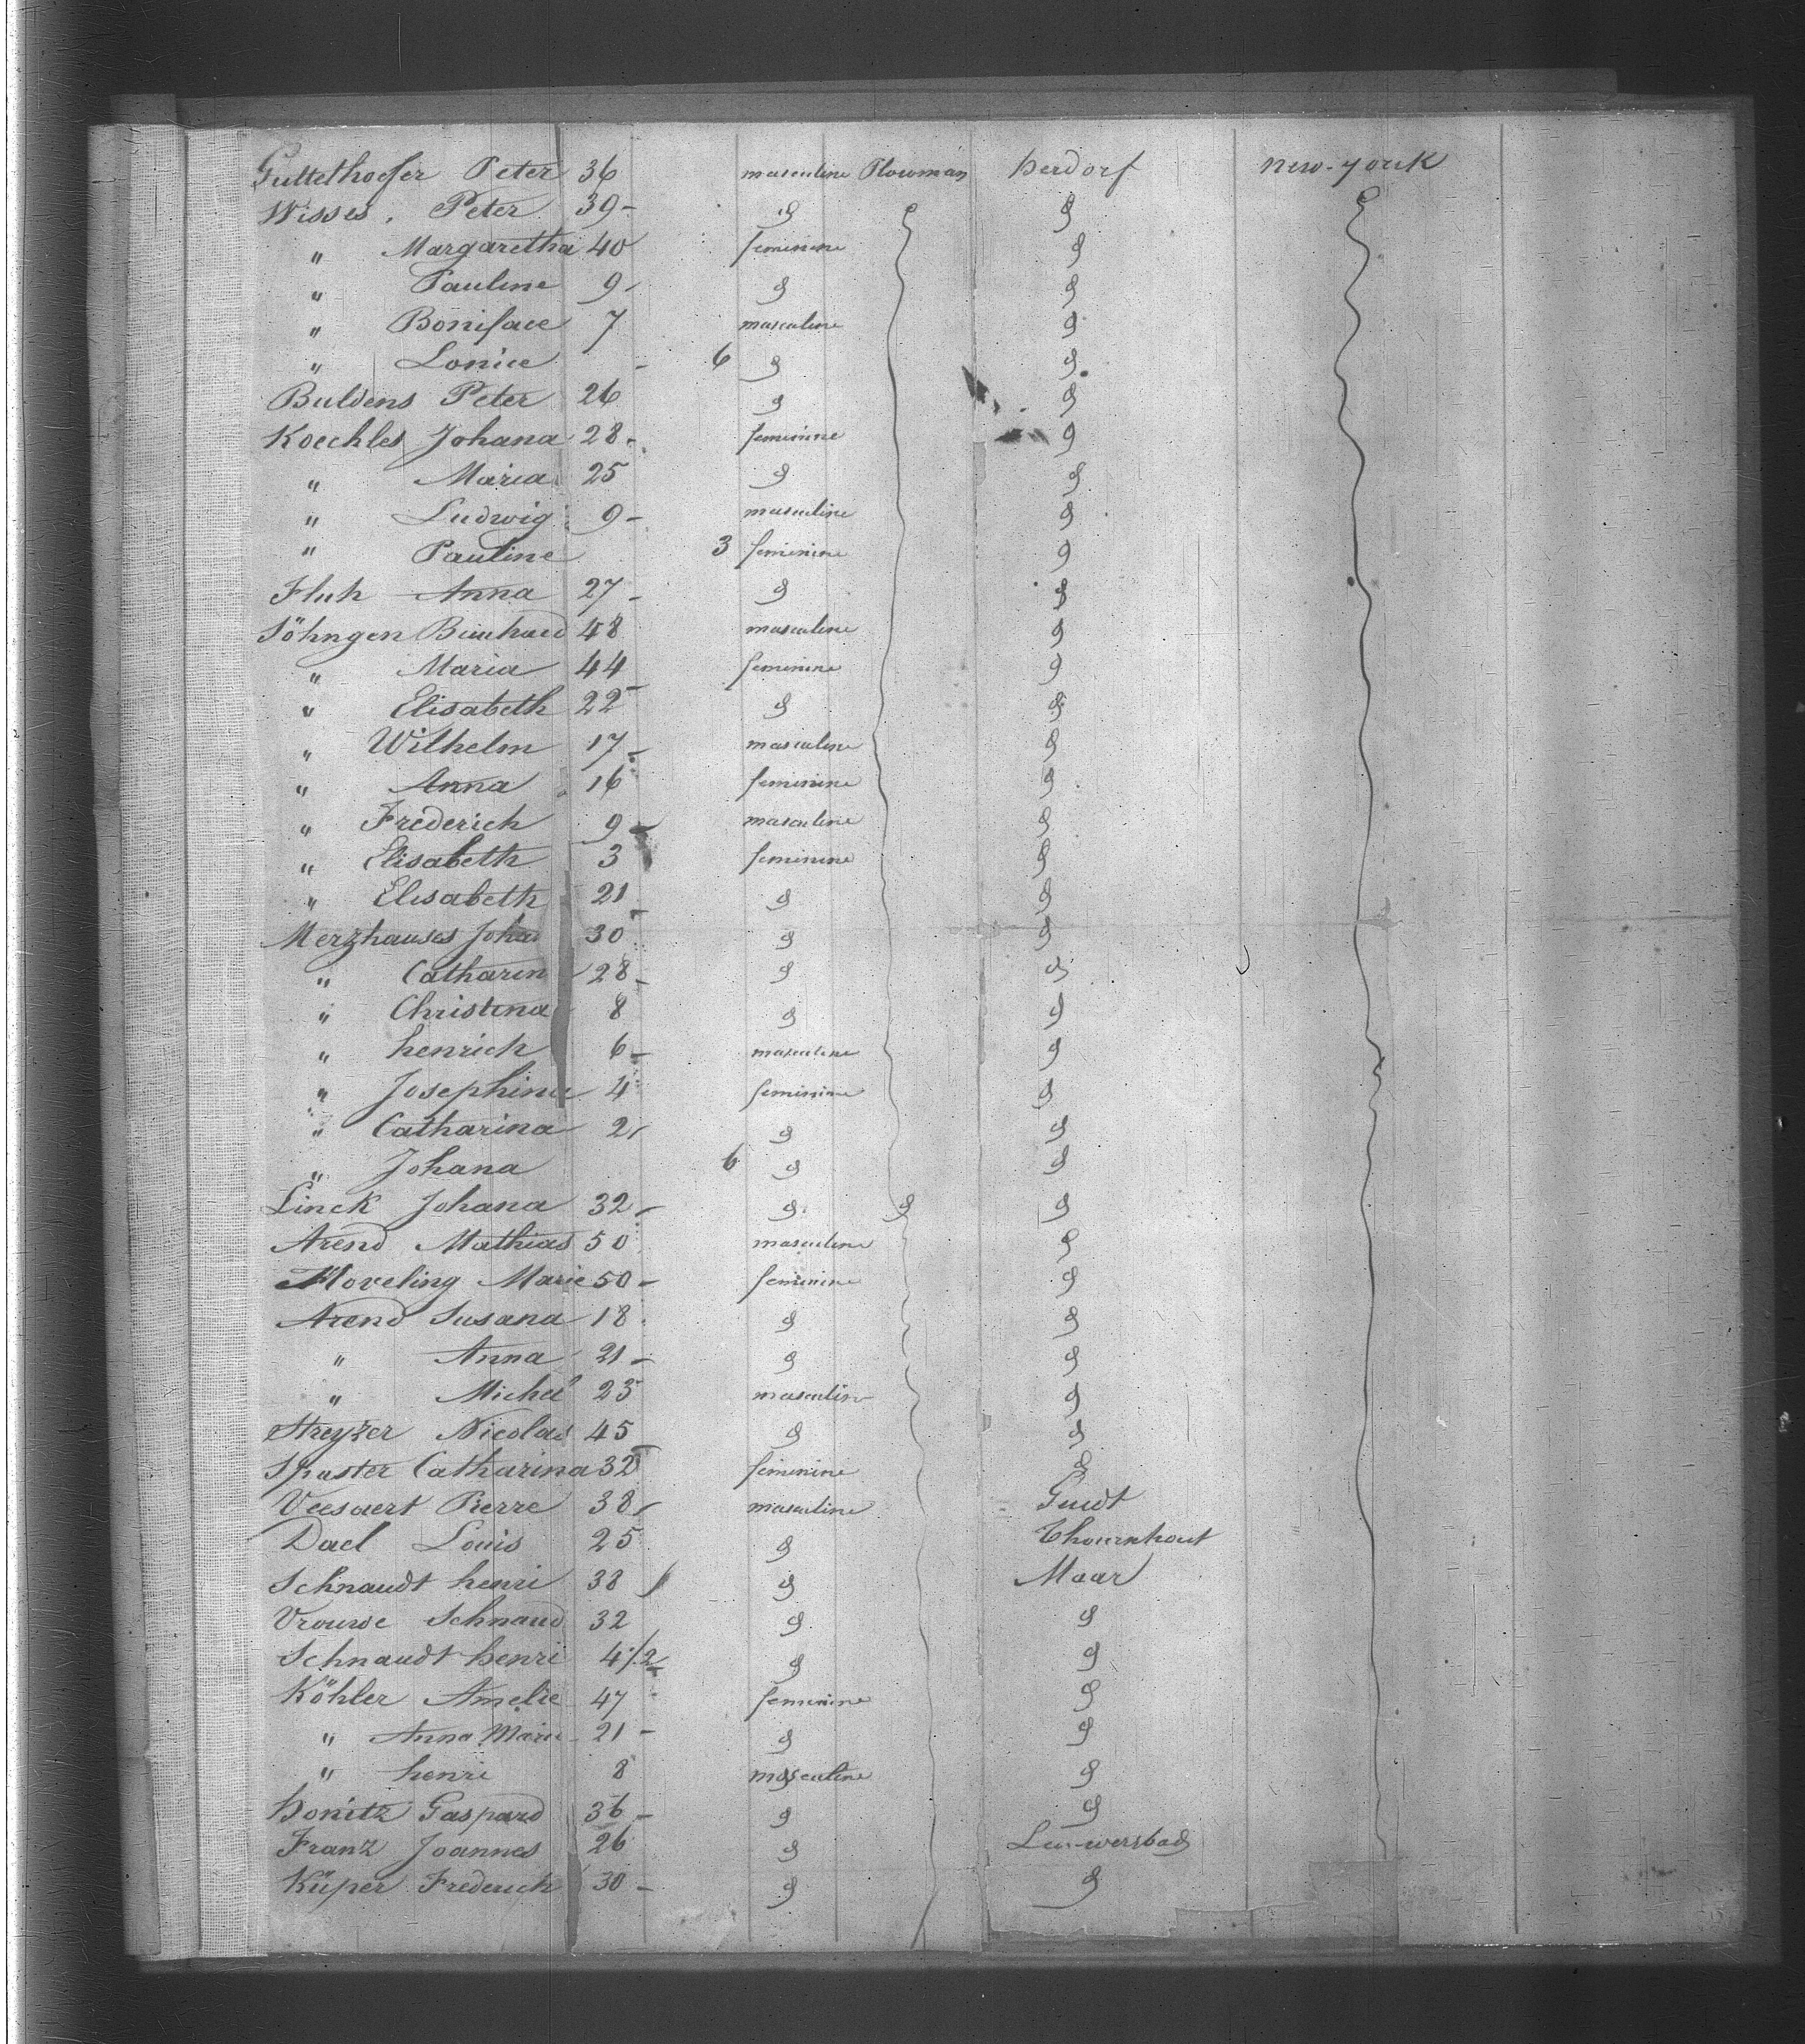 Guttelhoefer Peter 36 masculine Plowman Herdorf New-York
Wisses. Peter 39- 9 9
" Margaretha 40 feminine 9
" Pauline 9- 9 9
" Boniface 7 masculine 9
" Lonice - 6 9 9
Buldens Peter 26 9 9
Koechles Johana 28- feminine 9
" Maria 25 9 9
" Ludwig 9- masculine 9
" Pauline 3 feminine 9
Fluh Anna 27- 9 9
Söhngen 48 masculine 9
" Maria 44 feminine 9
" Elisabeth 22 9 9
" Wilhelm 17- masculine 9
" Anna 16 feminine 9
" Frederich 9- masculine 9
" Elisabeth 3 feminine 9
" Elisabeth 21 9 9
Merzhauses 30 9 9
" Catharin 28- 9 9
" Christina 8 9 9
" henrich 6- masculine 9
" Josephine 4 feminine 9
" Catharina 2- 9 9
" Johana 6 9 9
Linck Johana 32- 9 9 9
Arend Mathias 50 masculine 9
Moveling Marie 50- feminine 9
Arend Susana 18 9 9
" Anna 21- 9 9
" Michel 23 masculine 9
Streyzer Nicolas 45 9 9
Shuster Catharina 32 feminine 9
Veesaert Pierre 38- masculine
Dael Louis 25 9 Thournhout
Schnaudt henri 38 9 Maar
Vrouwe Schnaud 32 9 9
Schnaudt henri 4/2 9 9
Köhler Amelie 47 feminine 9
" Anna Marie 21- 9 9
" henri 8 masculine 9
Honitz Gaspard 36- 9 9
Franz Joannes 26 9
Küper Frederich 30- 9 9